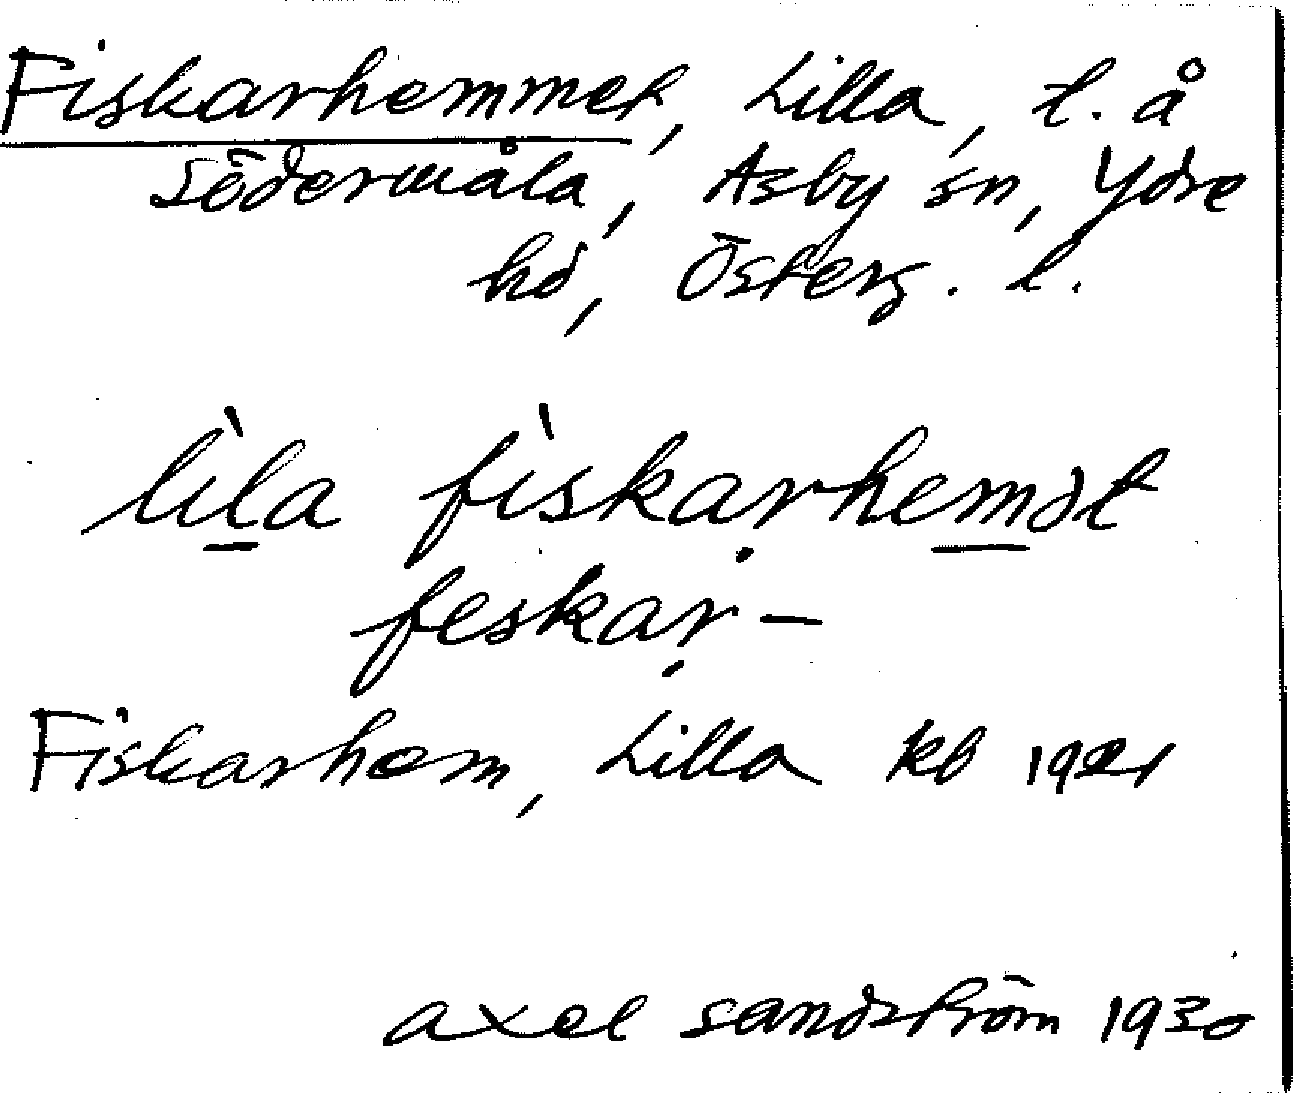 Fiskarhemmet, Lilla, t. å
Södermåla, Asby sn, Ydre
hd, Österg. l.
lìla fìskạrhemət
feskạr-
Fiskarhem, Lilla kb 1921
axel sandström 1930